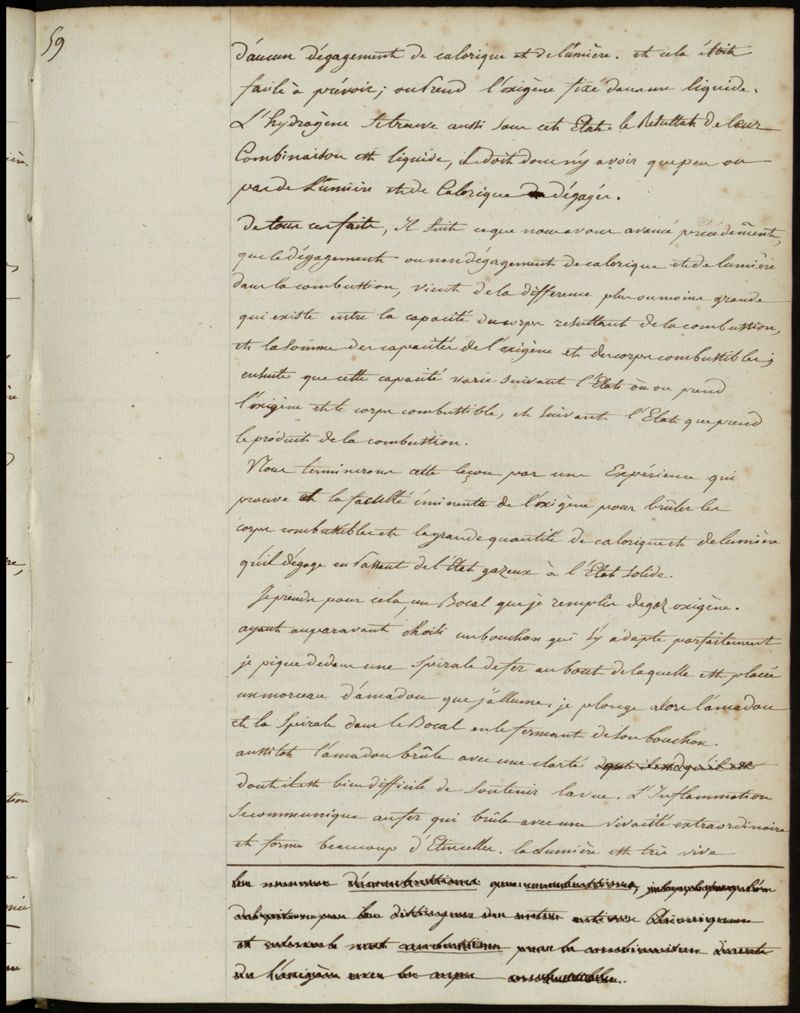 59
d'aucun dégagement de calorique et de lumière. et cela étoit
facile à prévoir; on prend l'oxigène fixé dans un liquide.
L'hydrogène se trouve aussi sous cet Etat. le Resultat de leur
Combinaison est liquide, Il doit donc n'y avoir que peu ou
pas de Lumière et de Calorique de dégagés.
de tous ces faits, Il suit ce que nous avons avancé précédemment,
que le dégagement ou non dégagement de calorique et de lumière
dans la combustion, vient de la difference plus ou moins grande
qui existe entre la capacité du corps resultant de la combustion,
et la somme des capacités de l'oxigène et des corps combustibles;
ensuite que cette capacité varie suivant l'Etat où on prend
l'oxigène et le corps combustible, et suivant l'Etat que prend
le produit de la combustion.
Nous terminerons cette leçon par une Expérience qui
prouve et la faculté éminente de l'oxigène pour brûler les
corps combustibles et la grande quantité de calorique et de lumière
qu'il dégage en passant de l'Etat gazeux à l'Etat solide.
Je prends pour cela, un Bocal que je remplis de gaz oxigène.
ayant auparavant choisi un bouchon qui s'y adapte parfaitement
je pique dedans une spirale de fer au bout de laquelle est placée
un morceau d'amadou que j'allume. je plonge alors l'amadou
et la spirale dans le Bocal en le fermant de son bouchon.
aussitot l'amadou brûle avec une clarté
dont il est bien difficile de soutenir la vue. L'Inflammation
se communique au fer qui brûle avec une vivacité extraordinaire
et forme beaucoup d'Etincelles. la Lumière est très vive